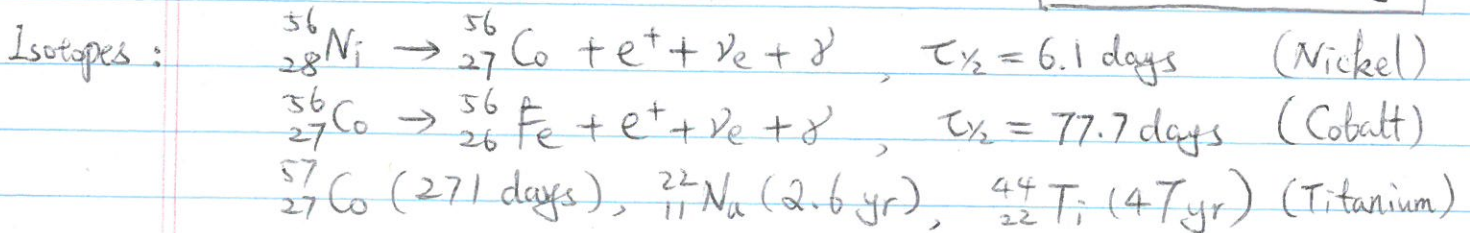 Isotopes : ⁵⁶₂₈Ni → ⁵⁶₂₇Co + e⁺ + νₑ + γ , τ½ = 6.1 days (Nickel)
⁵⁶₂₇Co → ⁵⁶₂₆Fe + e⁺ + νₑ + γ , τ½ = 77.7 days (Cobalt)
⁵⁷₂₇Co (271 days), ²²₁₁Na (2.6 yr), ⁴⁴₂₂Ti (47 yr) (Titanium)